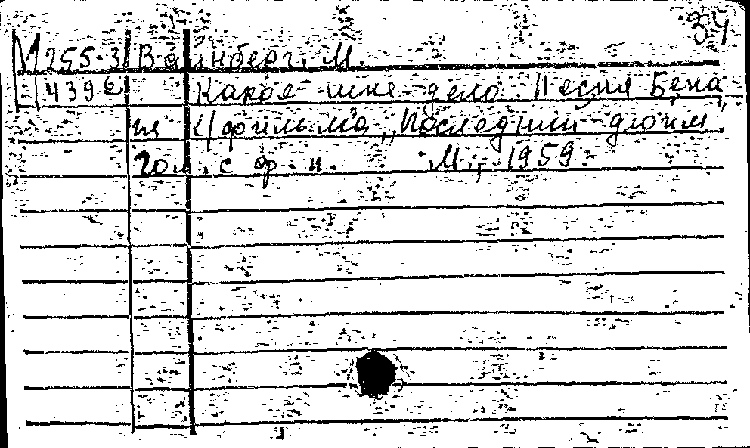 34
М 255-3 Вайнберг, М.
439 Какое мне дело. Песня Бена
из к/фильма „Последний дюйм"
Гол. с ф-п. М., 1959.